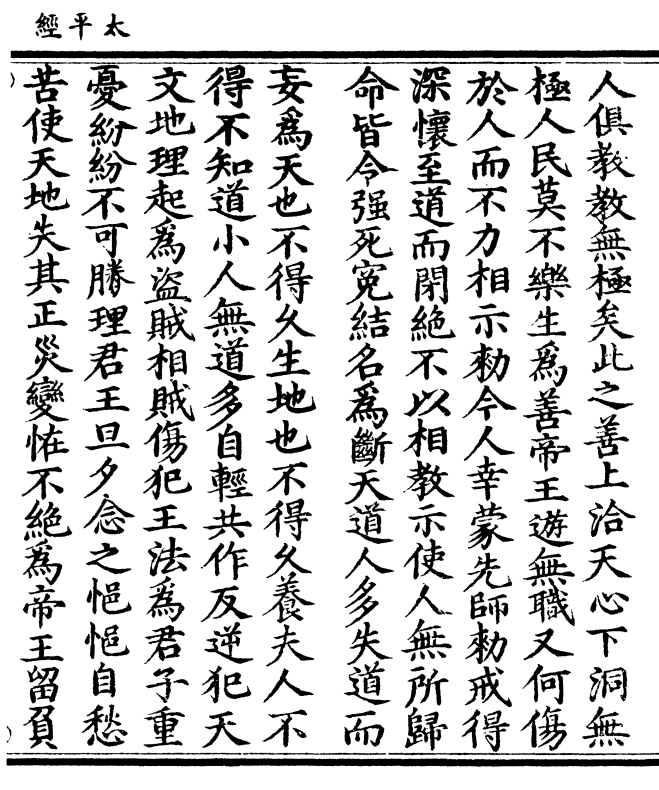 太平經
人俱教教無極矣此之善上洽天心下洞無
極人民莫不樂生爲善帝王遊無職又何傷
於人而不力相示勑今人幸蒙先師勑戒得
深懷至道而閉絶不以相教示使人無所歸
命皆令强死寃結名爲斷天道人多失道而
妄爲天也不得久生地也不得久養夫人不
得不知道小人無道多自輕共作反逆犯天
文地理起爲盗賊相賊傷犯王法爲君子重
憂紛紛不可勝理君王旦夕念之悒悒自愁
苦使天地失其正災變恠不絶爲帝王留負